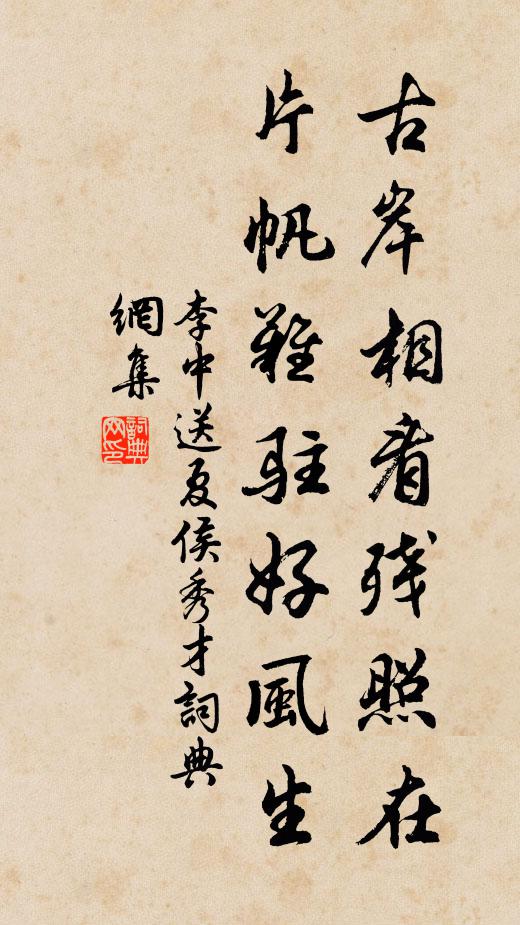 古岸相看残照在
片帆難駐好風生
李中送夏侯秀才詞典
網集
詞典
网印